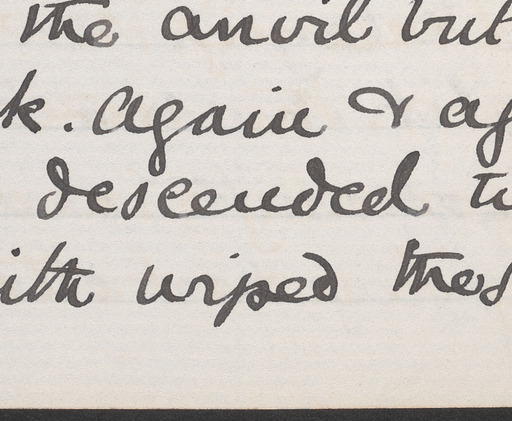 the anvil but
k. Again & ag
descended
ith wiped